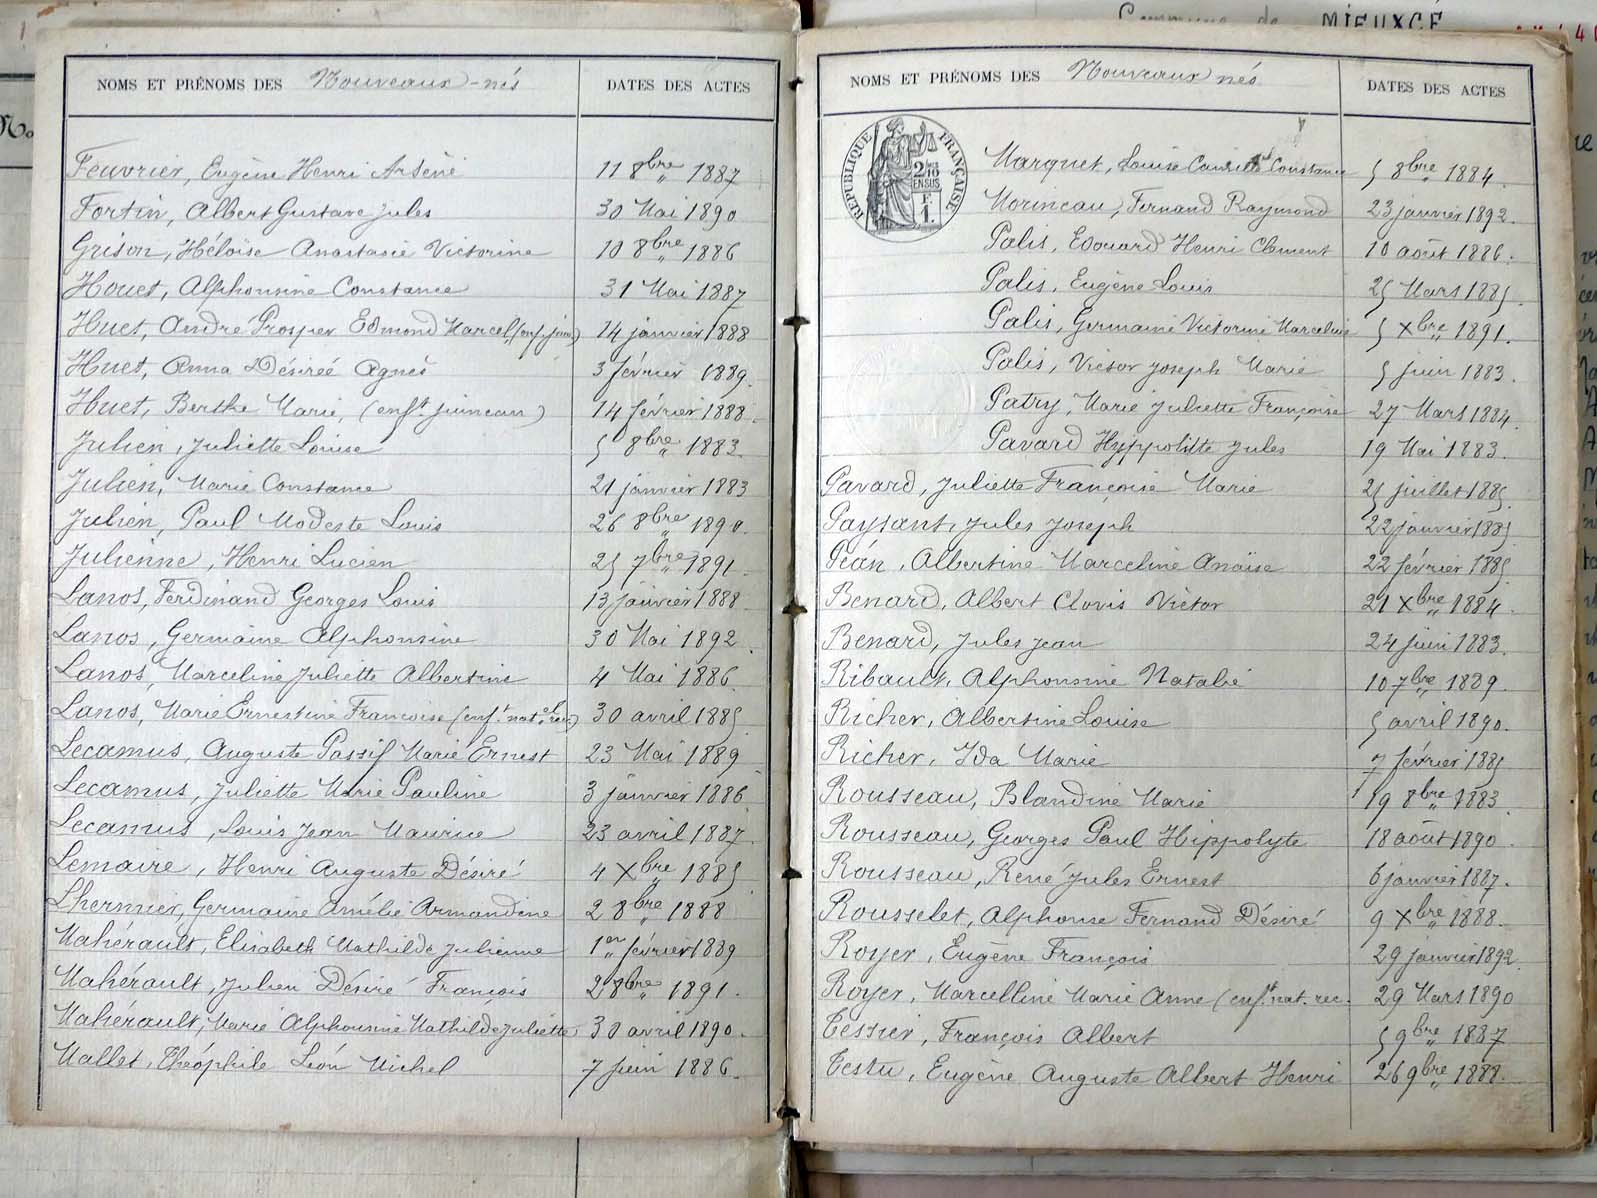 Commune de MIEUXCÉ
NOMS ET PRÉNOMS DES Nouveaux-nés DATES DES ACTES
Feuvrier, Eugène Henri Arsène 11 8bre 1887
Fortin, Albert Gustave Jules 30 Mai 1890
Grison, Héloïse Anastasie Victorine 10 8bre 1886
Houet, Alphonsine Constance 31 Mai 1887
Huet, André Prosper Edmond Marcel, (enf. jum) 14 janvier 1888
Huet, Anna Désirée Agnès 3 février 1889.
Huet, Berthe Marie, (enft. jumeau) 14 février 1888.
Julien, Juliette Louise 5 8bre 1883.
Julien, Marie Constance 21 janvier 1883
Julien, Paul Modeste Louis 26 8bre 1890.
Julienne, Henri Lucien 25 7bre 1891.
Lanos, Ferdinand Georges Louis 13 janvier 1888.
Lanos, Germaine Alphonsine 30 Mai 1892.
Lanos, Marceline Juliette Albertine 4 Mai 1886.
Lanos, Marie Ernestine Françoise (enft. nat.el rec) 30 avril 1885.
Lecamus, Auguste Passif Marie Ernest 23 Mai 1889.
Lecamus, Juliette Marie Pauline 3 janvier 1886.
Lecamus, Louis Jean Maurice 23 avril 1887.
Lemaire, Henri Auguste Désiré 4 Xbre 1885
Lhermier, Germaine Amélie Armandine 2 8bre 1888
Mahérault, Elisabeth Mathilde Julienne 1er février 1889
Mahérault, Julien Désiré François 2 8bre 1891.
Mahérault, Marie Alphonsine Mathilde Juliette 30 avril 1890.
Mallet, Théophile Léon Michel 7 juin 1886.
NOMS ET PRÉNOMS DES Nouveaux nés DATES DES ACTES
RÉPUBLIQUE FRANÇAISE
2/10 EN SUS
F. 1.
Marquet, Louise Constance 5 8bre 1884.
Morineau, Fernand Raymond 23 janvier 1892.
Palis, Edouard Henri Clement 10 août 1886.
Palis, Eugène Louis 25 Mars 1885.
Palis, Germaine Victorine Marceline 5 Xbre 1891.
Palis, Victor Joseph Marie 5 juin 1883.
Patry, Marie Juliette Françoise 27 Mars 1884.
Pavard Hyppolitte Jules 19 Mai 1883.
Pavard, Juliette Françoise Marie 25 juillet 1885.
Paysant, Jules Joseph 22 janvier 1885
Péan, Albertine Marceline Anaïse 22 février 1885
Benard, Albert Clovis Victor 21 Xbre 1884.
Benard, Jules Jean 24 juin 1883.
Ribault, Alphonsine Natalie 10 7bre 1889.
Richer, Albertine Louise 5 avril 1890.
Richer, Ida Marie 7 février 1885
Rousseau, Blandine Marie 19 8bre 1883.
Rousseau, Georges Paul Hippolyte 18 août 1890.
Rousseau, René Jules Ernest 6 janvier 1887.
Rousselet, Alphonse Fernand Désiré 9 Xbre 1888.
Royer, Eugène François 29 janvier 1892.
Royer, Marcelline Marie Anne (enft. nat. rec. 29 Mars 1890
Tessier, François Albert 5 9bre 1887
Testu, Eugène Auguste Albert Henri 26 9bre 1888.